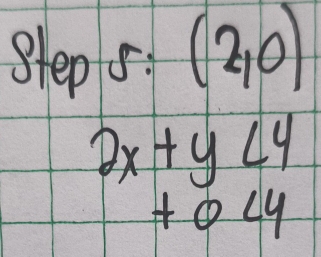 Step 5: (2,0)
2x + y < 4
+ 0 < 4